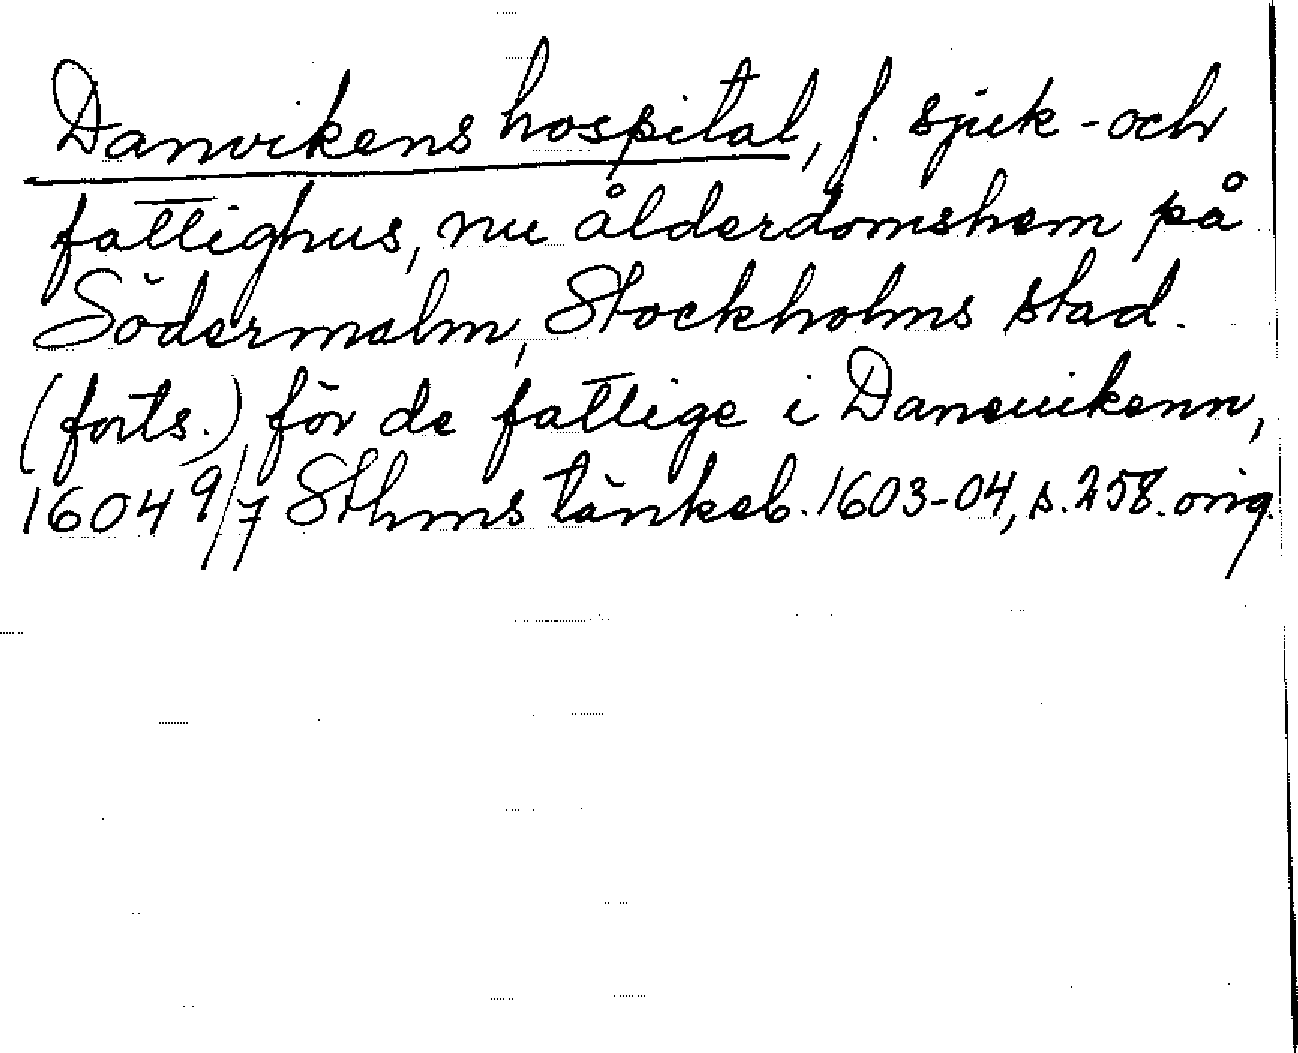 Danvikens hospital, f. sjuk- och
fattighus, nu ålderdomshem på
Södermalm, Stockholms stad.
(forts.) för de fattige i Daneuikenn,
1604 9/7 Sthms tänkeb. 1603-04, s. 258. orig.